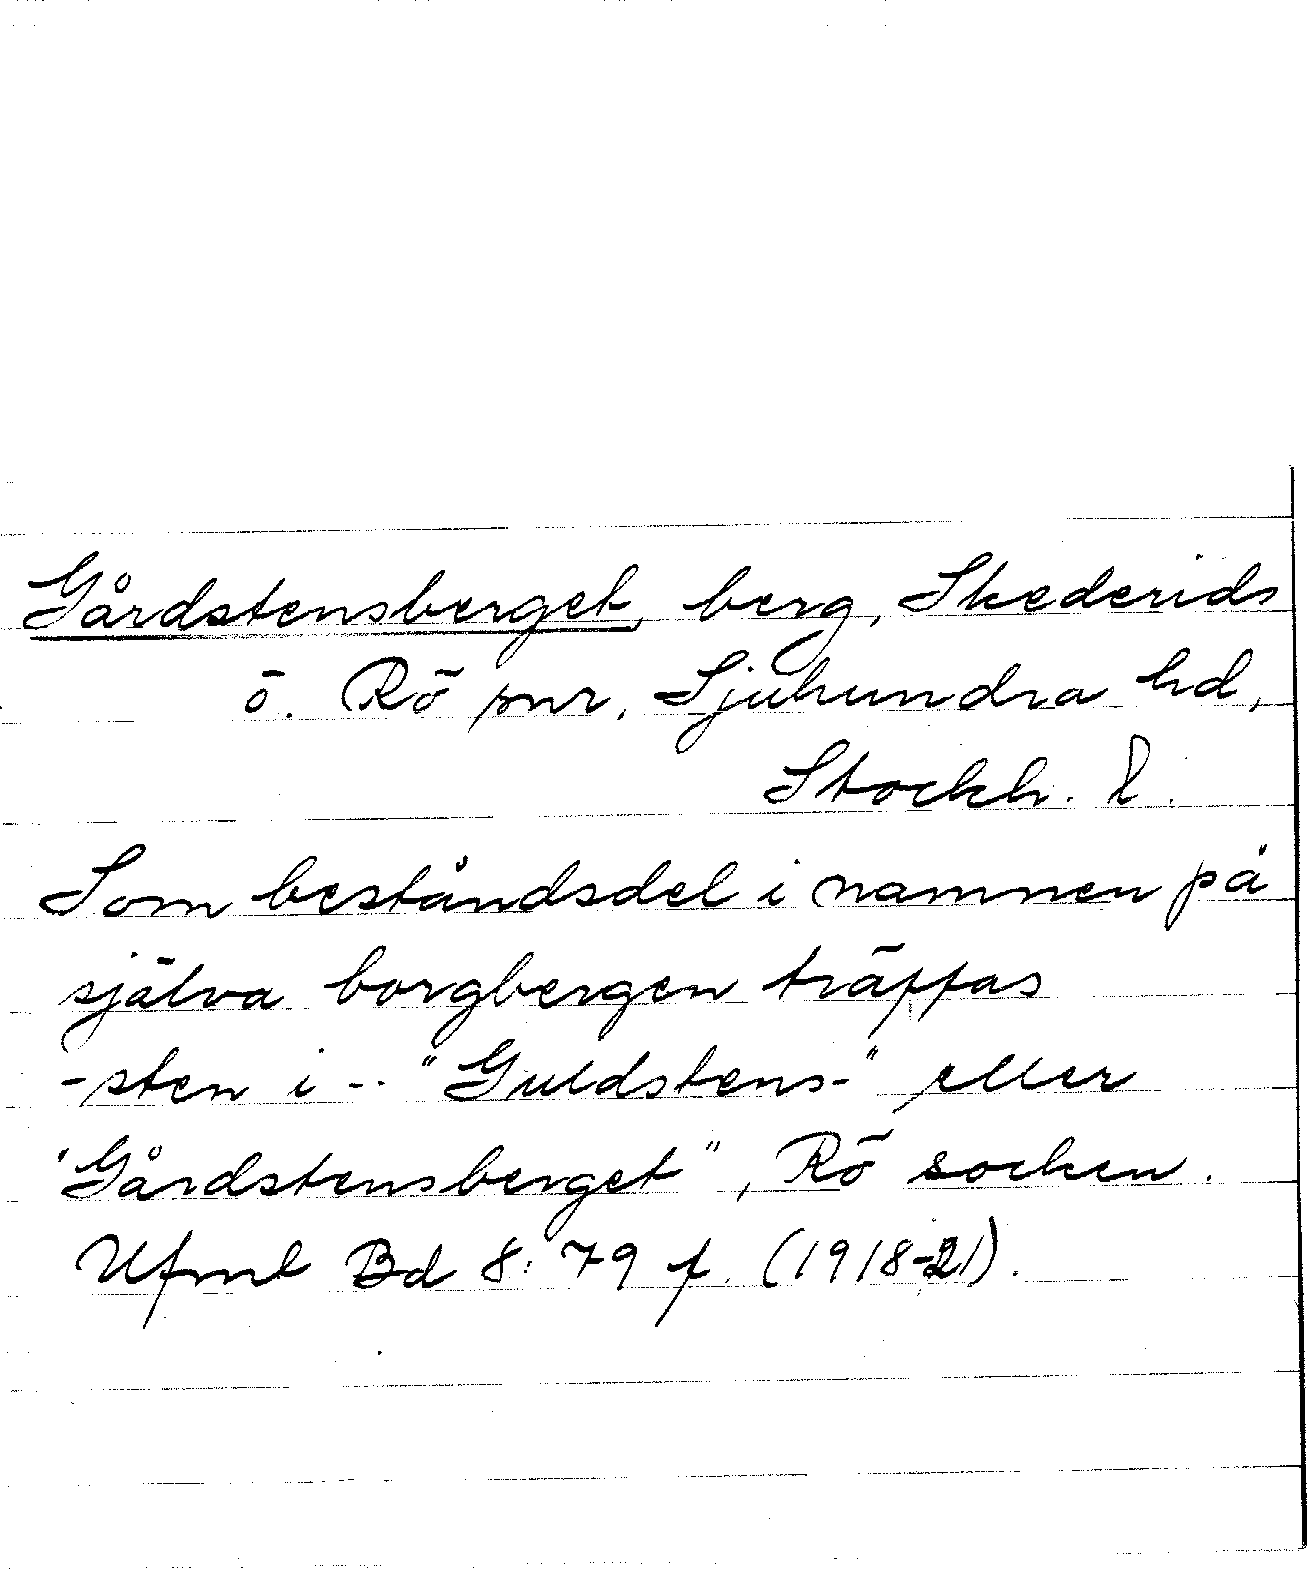 Gårdstensberget, berg, Skederids
ö. Rö snr, Sjuhundra hd,
Stockh. l.
Som beståndsdel i namnen på
själva borgbergen träffas
-sten i -- "Guldstens-" eller
"Gårdstensberget", Rö socken.
Ufmt Bd 8: 79 f. (1918-21).